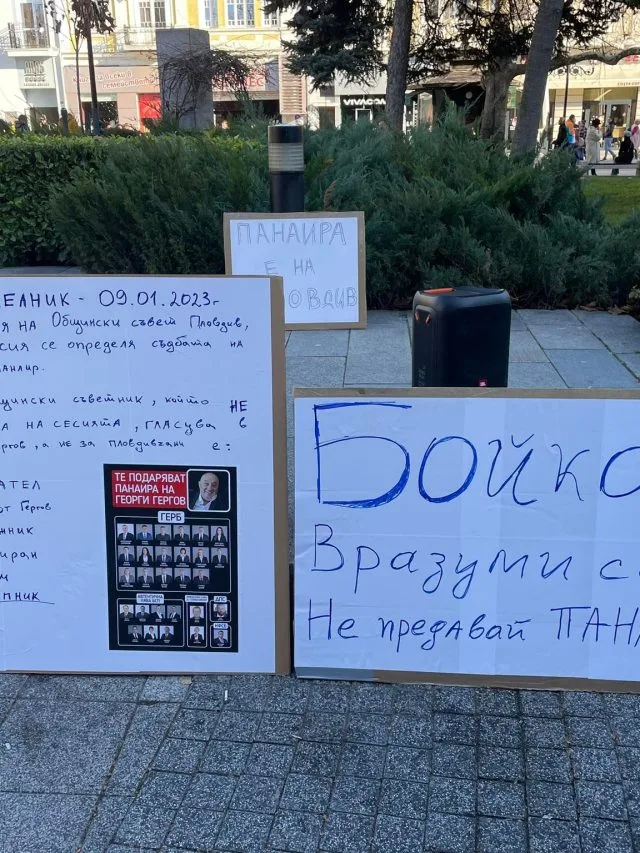 VIVACOM
ПАНАИРА
Е НА
ПЛОВДИВ
ЕЛНИК - 09.01.2023г
Я НА Общински съвет Пловдив,
сия се определя съдбата на
панаир.
щински съветник, който НЕ
А НА СЕСИЯТА, ГЛАСУВА В
ергов, а не за пловдивчани е:
АТЕЛ
от Гергов
жник
иран
м
пник
ТЕ ПОДАРЯВАТ
ПАНАИРА НА
ГЕОРГИ ГЕРГОВ
ГЕРБ
Бойко
Вразуми с
Не предавай ПАНА